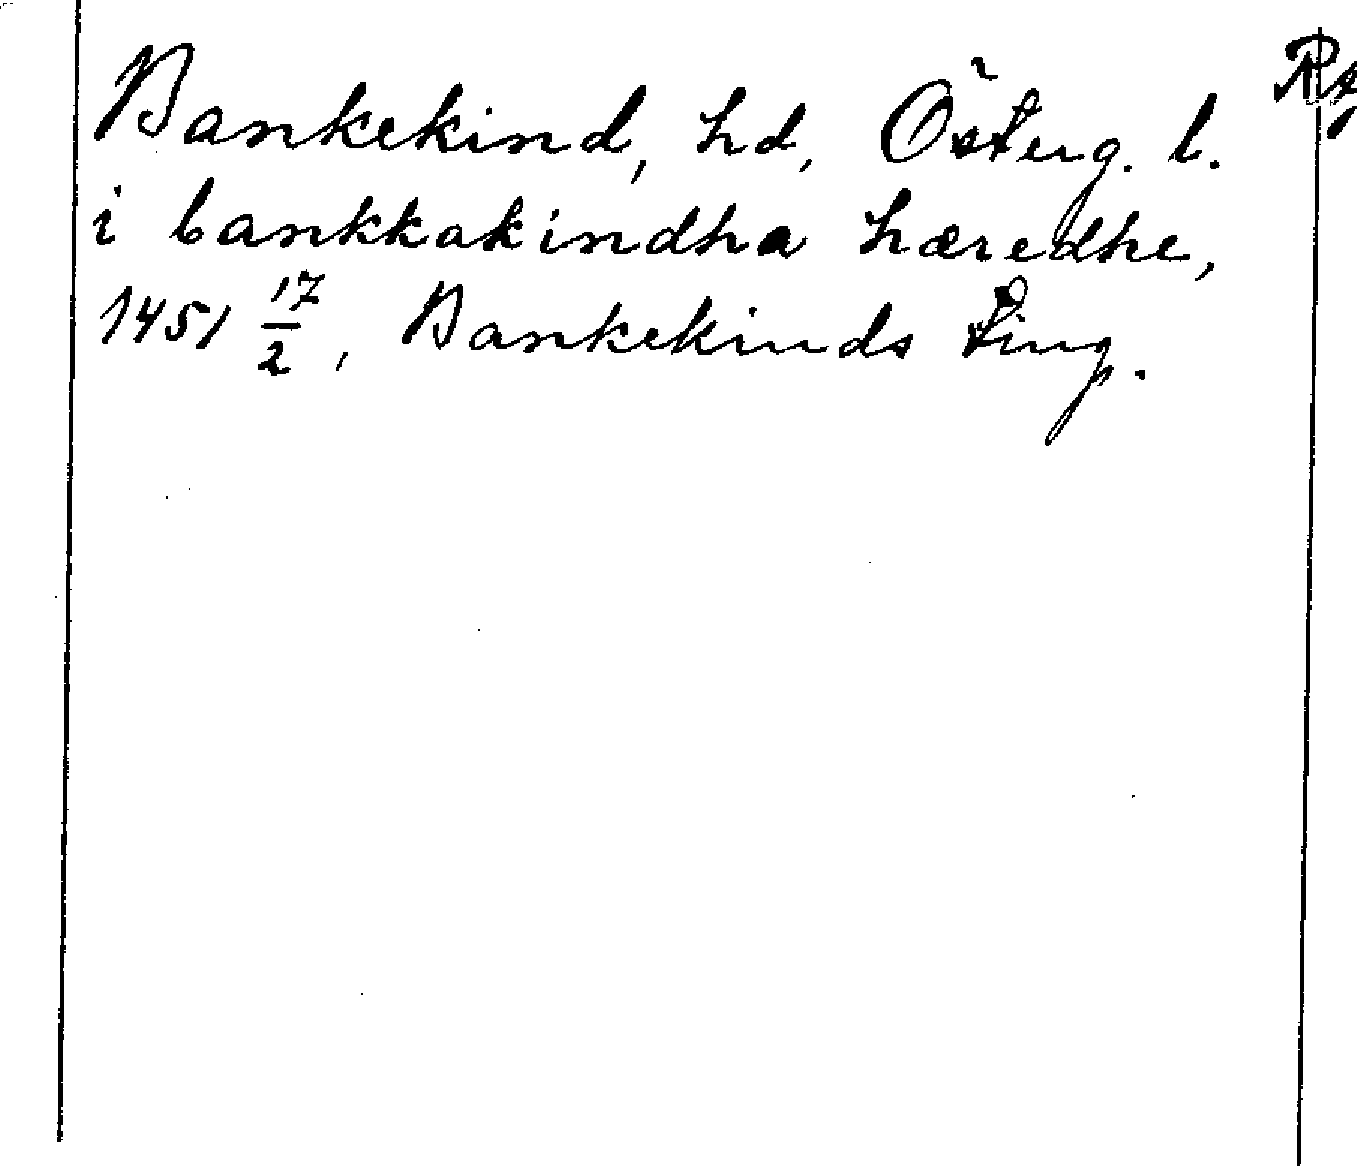 Bankekind, hd, Österg. l.
i bankkakindha hæredhe,
1451 17/2, Bankekinds ting.